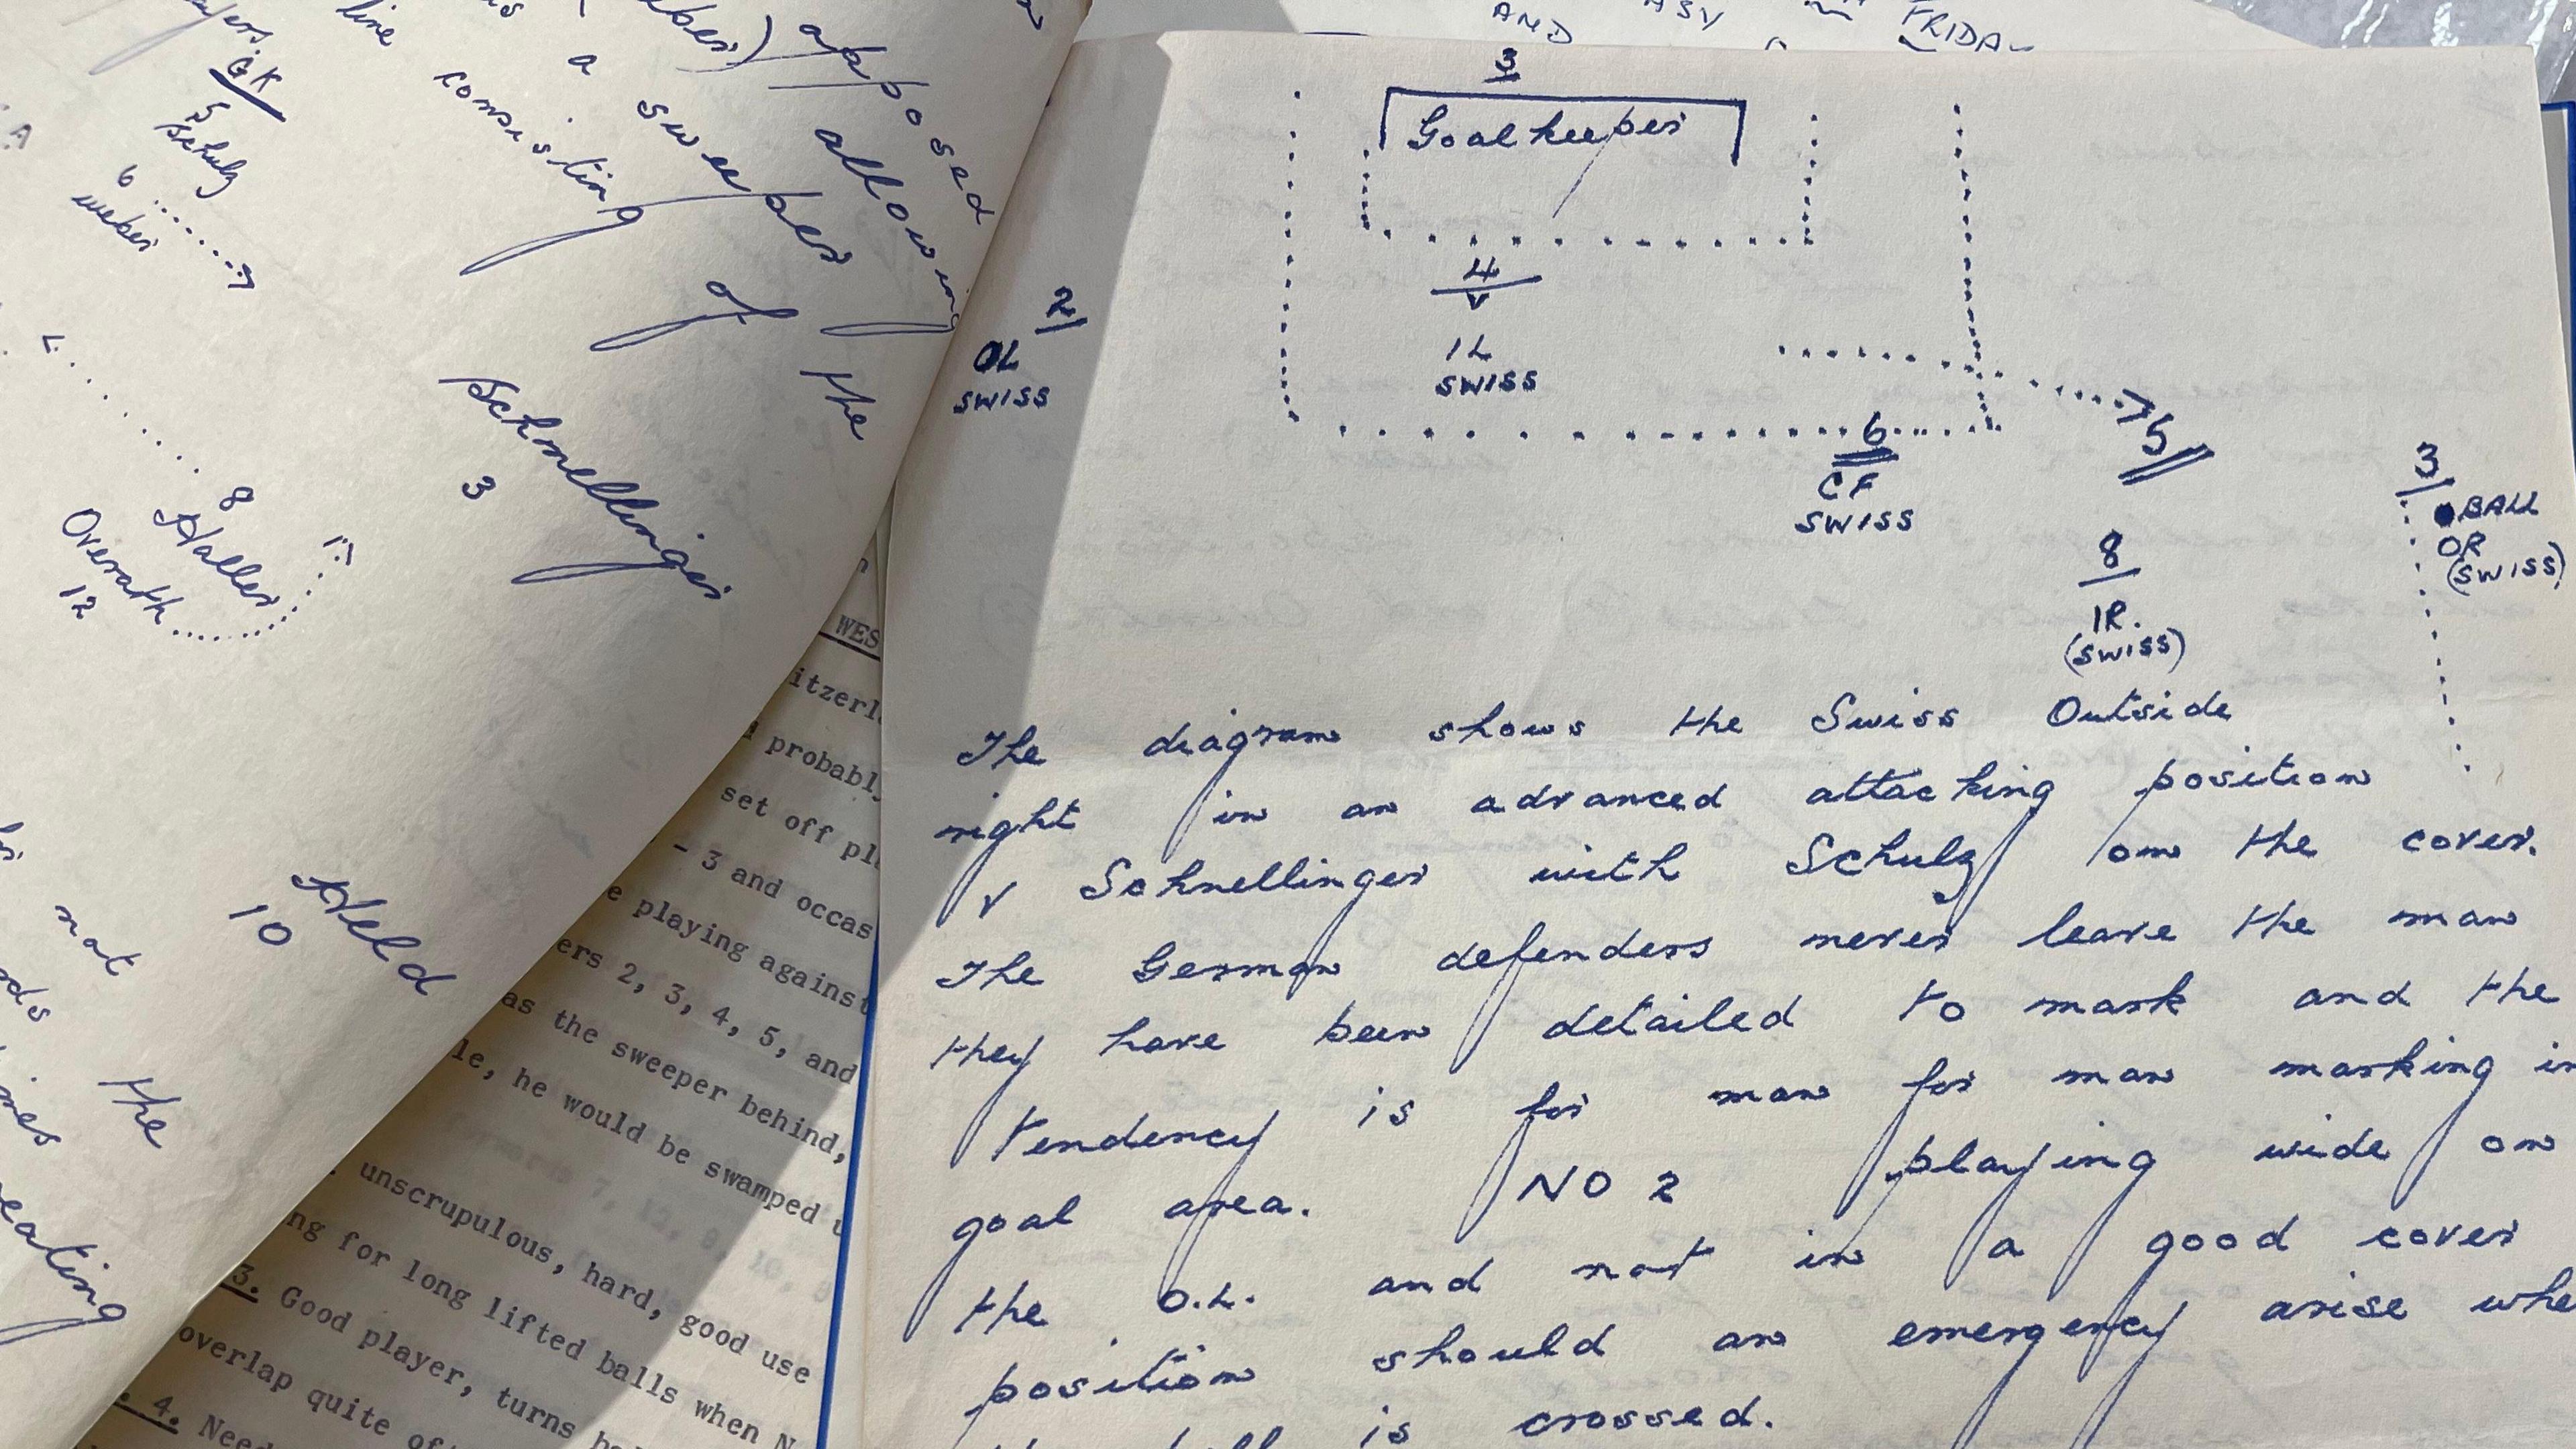 AND
FRIDA
3
Goalkeeper
4
V
2
OL
SWISS
IL
SWISS
5
6
CF
SWISS
3
BALL
OR
(SWISS)
8
IR.
(SWISS)
The diagram shows the Swiss Outside
right in an advanced attacking position
v Schnellinger with Schulz on the cover.
The German defenders never leave the man
they have been detailed to mark and the
tendency is for man for man marking in
goal area. NO 2 playing wide on
the O.L. and not in a good cover
position should an emergency arise whe
is crossed.
GK
5
Schulz
6
weber
line consisting of the
a sweeper
opposed
allowing
Schnellinger
3
8
Haller
Overath
12
Held
10
not
the
eating
WES
itzerl
probabl
set off pl
- 3 and occas
e playing against
ers 2, 3, 4, 5, and
as the sweeper behind,
le, he would be swamped
unscrupulous, hard, good use
ng for long lifted balls when N
3. Good player, turns
overlap quite of
4. Need